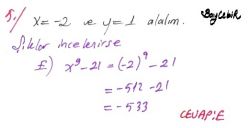 5./ x=-2 ve y=1 alalım.
BayÇebir
Şıklar incelenirse
E) x⁹-21=(-2)⁹-21
=-512-21
=-533
CEVAP:E